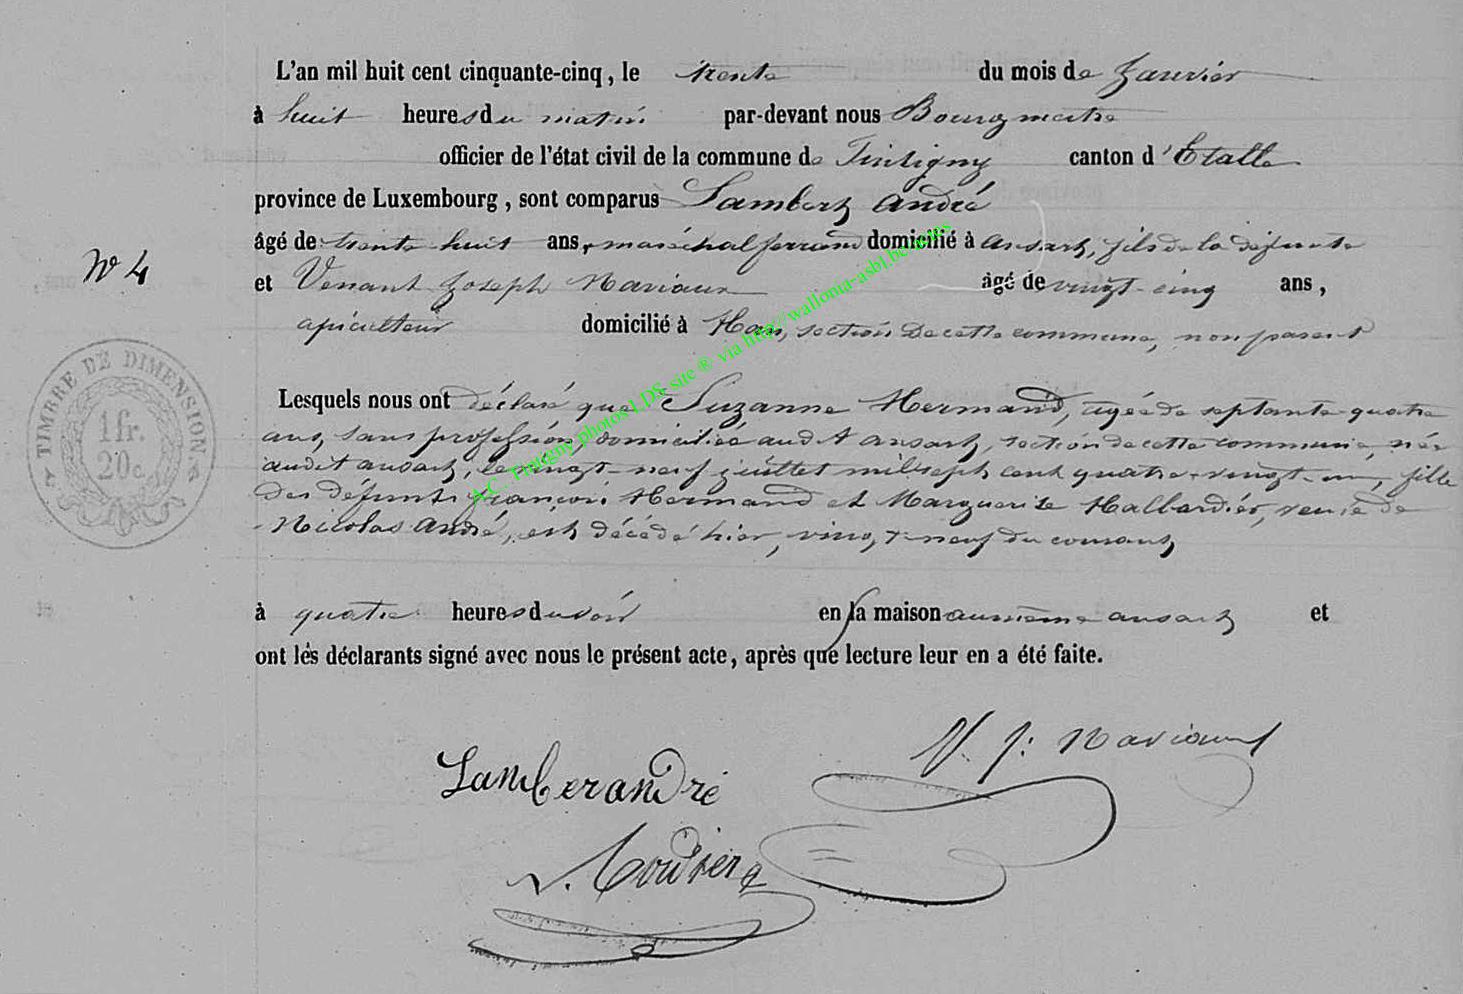 L'an mil huit cent cinquante-cinq, le trente du mois de Janvier
à huit heures du matin par-devant nous Bourgmestre
officier de l'état civil de la commune de Tintigny canton d'Etalle
province de Luxembourg, sont comparus Lambert André
âgé de trente huit ans, maréchal ferrand domicilié à ansart, fils de la défunte
N° 4
et Venant Joseph Mariaux âgé de vingt-cinq ans,
apiculteur domicilié à Han, section de cette commune, non parent
TIMBRE DE DIMENSION
1 fr.
20 c.
Lesquels nous ont déclaré que Suzanne Hermand, agée de septante-quatre
ans, sans profession, domiciliée audit ansart, section de cette commune, née
audit ansart, le vingt-neuf juillet mil sept cent quatre-vingt-un, fille
des défunts françois Hermand et Marguerite Halbardier, veuve de
Nicolas André, est décédé hier, vingt-neuf du courant,
à quatre heures du soir en sa maison au même ansart et
ont les déclarants signé avec nous le présent acte, après que lecture leur en a été faite.
V. J. Mariaux
Lamber andré
A.C. Tintigny photos LDS site ® via http://wallonia-asbl.be/actes